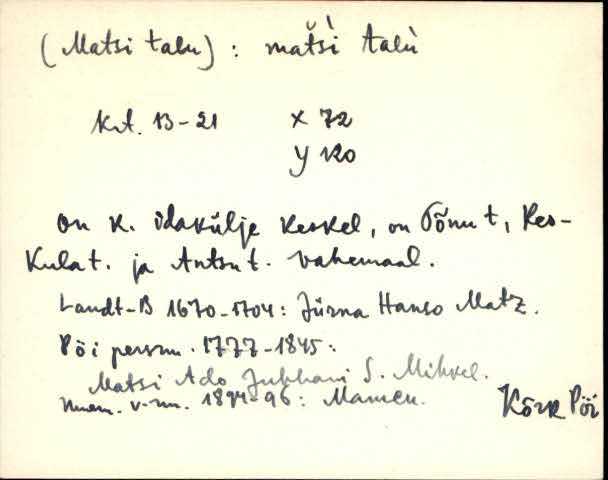 (Matsi talu) : matši talù
Krt. 13-21 X 72
Y 120
On k. idakülje keskel, on Tõnu t, Kes-
kula t. ja Antsu t. vahemaal.
Landt-B 1670-1704: Jürna Hanso Matz.
Pöi persm. 1777-1845:
Matsi Ado Juhhani S. Mihkel.
1894-96:
Pöi